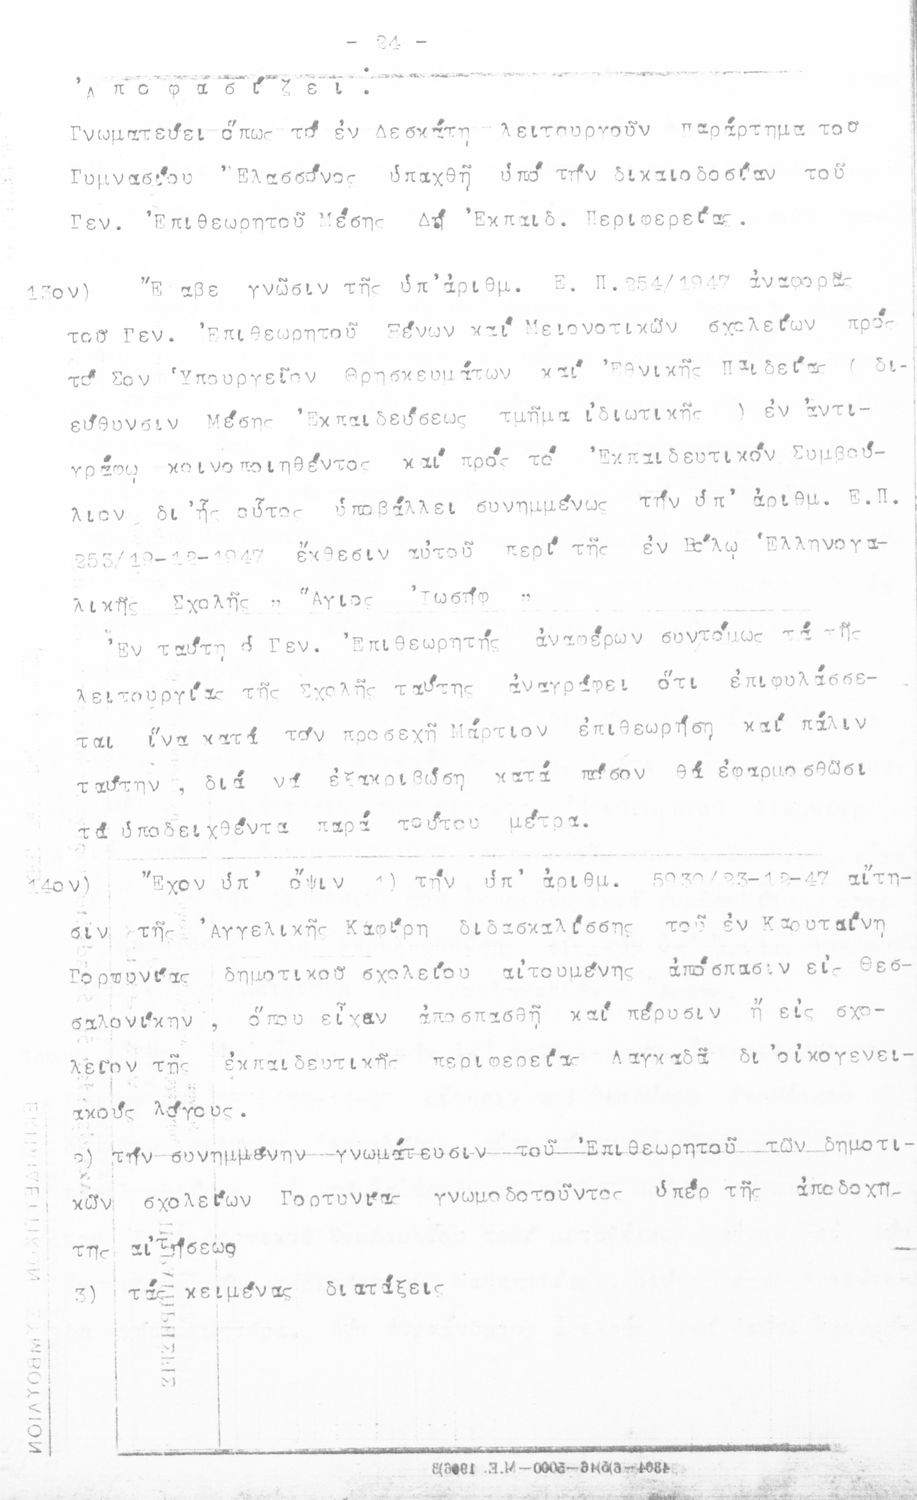 - 24 -
Ἀ π ο φ α σ ί ζ ε ι :
Γνωματεύει ὅπως τό ἐν Δεσκάτη λειτουργοῦν παράρτημα τοῦ
Γυμνασίου Ἐλασσόνος ὑπαχθῆ ὑπό τήν δικαιοδοσίαν τοῦ
Γεν. Ἐπιθεωρητοῦ Μέσης Δή Ἐκπαιδ. Περιφερείας.
13ον) Ἔ αβε γνῶσιν τῆς ὑπ' ἀριθμ. Ε. Π. 254/1947 ἀναφορᾶς
τοῦ Γεν. Ἐπιθεωρητοῦ Ξένων καί Μειονοτικῶν σχολείων πρός
τό Σον Ὑπουργεῖον Θρησκευμάτων καί Ἐθνικῆς Παιδείας ( δι-
εύθυνσιν Μέσης Ἐκπαιδεύσεως τμῆμα ἰδιωτικῆς ) ἐν ἀντι-
γράφῳ κοινοποιηθέντος καί πρός τό Ἐκπαιδευτικόν Συμβού-
λιον δι' ἧς οὗτος ὑποβάλλει συνημμένως τήν ὑπ' ἀριθμ. Ε.Π.
253/19-12-1947 ἔκθεσιν αὐτοῦ περί τῆς ἐν Βόλῳ Ἑλληνογα-
λικῆς Σχολῆς " Ἅγιος Ἰωσήφ "
Ἐν ταύτη ὁ Γεν. Ἐπιθεωρητής ἀναφέρων συντόμως τά τῆς
λειτουργίας τῆς Σχολῆς ταύτης ἀναγράφει ὅτι ἐπιφυλάσσε-
ται ἵνα κατά τόν προσεχῆ Μάρτιον ἐπιθεωρήση καί πάλιν
ταύτην , διά νά ἐξακριβώση κατά πόσον θά ἐφαρμοσθῶσι
τά ὑποδειχθέντα παρά τούτου μέτρα.
14ον) Ἔχον ὑπ' ὄψιν 1) τήν ὑπ' ἀριθμ. 5930/23-12-47 αἴτη-
σιν τῆς Ἀγγελικῆς Καφίρη διδασκαλίσσης τοῦ ἐν Καρυταίνη
Γορτυνίας δημοτικοῦ σχολείου αἰτουμένης ἀπόσπασιν εἰς Θεσ-
σαλονίκην , ὅπου εἶχεν ἀποσπασθῆ καί πέρυσιν ἤ εἰς σχο-
λεῖον τῆς ἐκπαιδευτικῆς περιφερείας Λαγκαδᾶ δι' οἰκογενει-
ακούς λόγους.
2) τήν συνημμένην γνωμάτευσιν τοῦ Ἐπιθεωρητοῦ τῶν δημοτι-
κῶν σχολείων Γορτυνίας γνωμοδοτοῦντος ὑπέρ τῆς ἀποδοχῆ-
της αἰτήσεως
3) τάς κειμένας διατάξεις
ΕΚΠΑΙΔΕΥΤΙΚΟΝ ΣΥΜΒΟΥΛΙΟΝ